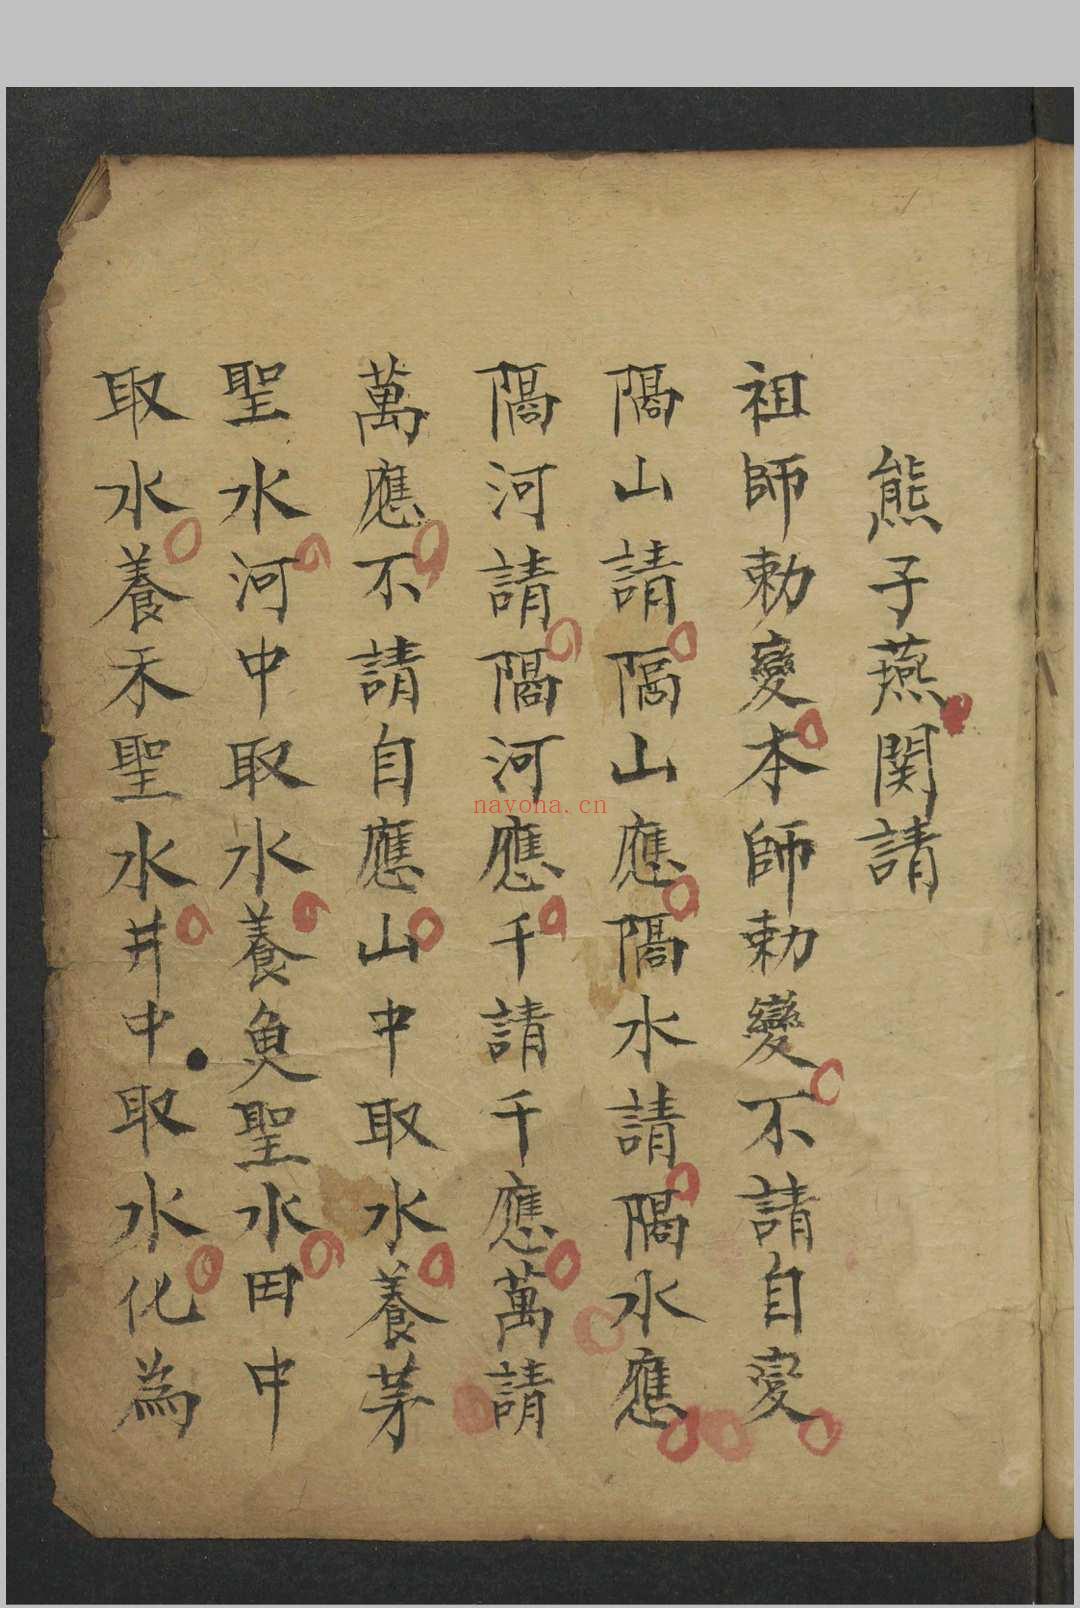 熊子燕関請
祖師勅變本師勅變不請自变
隔山請隔山應隔水請隔水應
隔河請隔河應千請千應萬請
萬應不請自應山中取水養茅
聖水河中取水養魚聖水田中
取水養禾聖水井中取水化為
nayona.cn